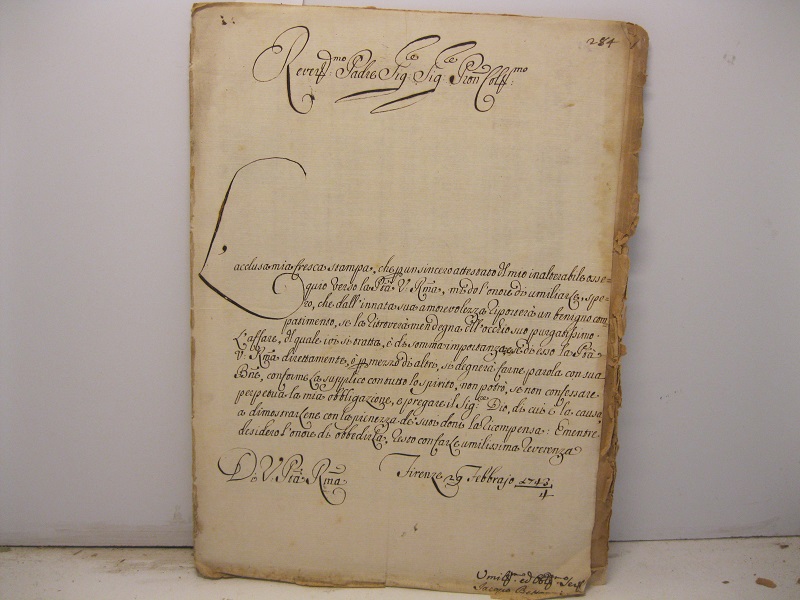 284
Reverḿo Padre Sig.re Sig.re Pron Colḿo
L'acclusa mia fresca stampa, che p un sincero attestato del mio inalterabile osse-
quio verso la Ptà V. Rma, me do l'onore di umiliarle, spe-
ro, che dall'innata sua amorevolezza riporterà un benigno com-
patimento, se la ritroverà men degna dell'occhio suo purgatissimo.
L'affare, del quale ivi si tratta, è di somma importanza, e se di esso la Ptà
V. Rma direttamente, ò p mezzo di altri, si degnerà farne parola con sua
Bne, conforme la supplico con tutto lo spirito, non potrò, se non confessare
perpetua la mia obbligazione, e pregare il Sig.re Dio, di cui è la causa,
a dimostrarlene con la pienezza de' suoi doni la ricompensa: E mentre
desidero l'onore di obbedirla, resto con farle umilissima reverenza
Di V. Ptà Rma
Firenze 29 Febbrajo 1743/4
Umilḿo ed Obbḿo Ser
Jacopo